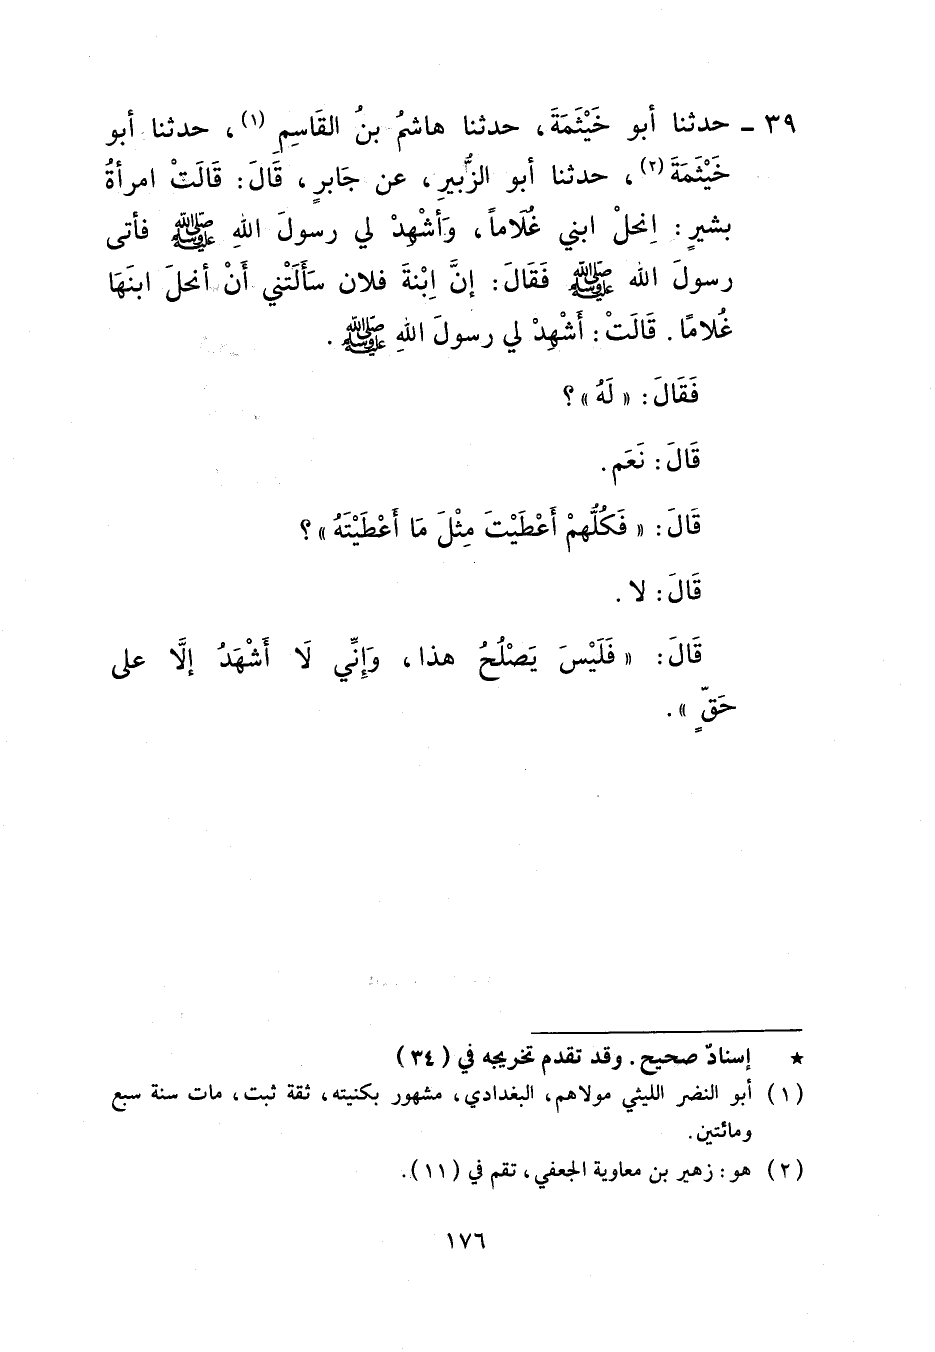 ٣٩ ـ حدثنا أبو خَيْثَمَةَ، حدثنا هاشمُ بنُ القَاسِمِ (١)، حدثنا أبو
خَيْثَمَةَ (٢)، حدثنا أبو الزُّبيرِ، عن جَابرٍ، قَالَ: قَالَتْ امرأةُ
بشيرٍ: اِنحلْ ابني غُلَاماً، وَأشْهِدْ لي رسولَ اللهِ ﷺ فأتى
رسولَ الله ﷺ فَقَالَ: إنَّ اِبْنةَ فلان سَأَلَتْني أَنْ أنحلَ ابنَهَا
غُلامًا. قَالَتْ: أَشْهِدْ لي رسولَ اللهِ ﷺ.
فَقَالَ: « لَهُ »؟
قَالَ: نَعَم.
قَالَ: « فَكُلُّهمْ أَعْطَيْتَ مِثْلَ مَا أَعْطَيْتَهُ »؟
قَالَ: لا.
قَالَ: « فَلَيْسَ يَصْلُحُ هذا، وَإِنِّي لَا أَشْهَدُ إلَّا على
حَقٍّ ».
★ إسنادٌ صحيح. وقد تقدم تخريجه في (٣٤)
(١) أبو النضر الليثي مولاهم، البغدادي، مشهور بكنيته، ثقة ثبت، مات سنة سبع
ومائتين.
(٢) هو: زهير بن معاوية الجعفي، تقم في (١١).
١٧٦